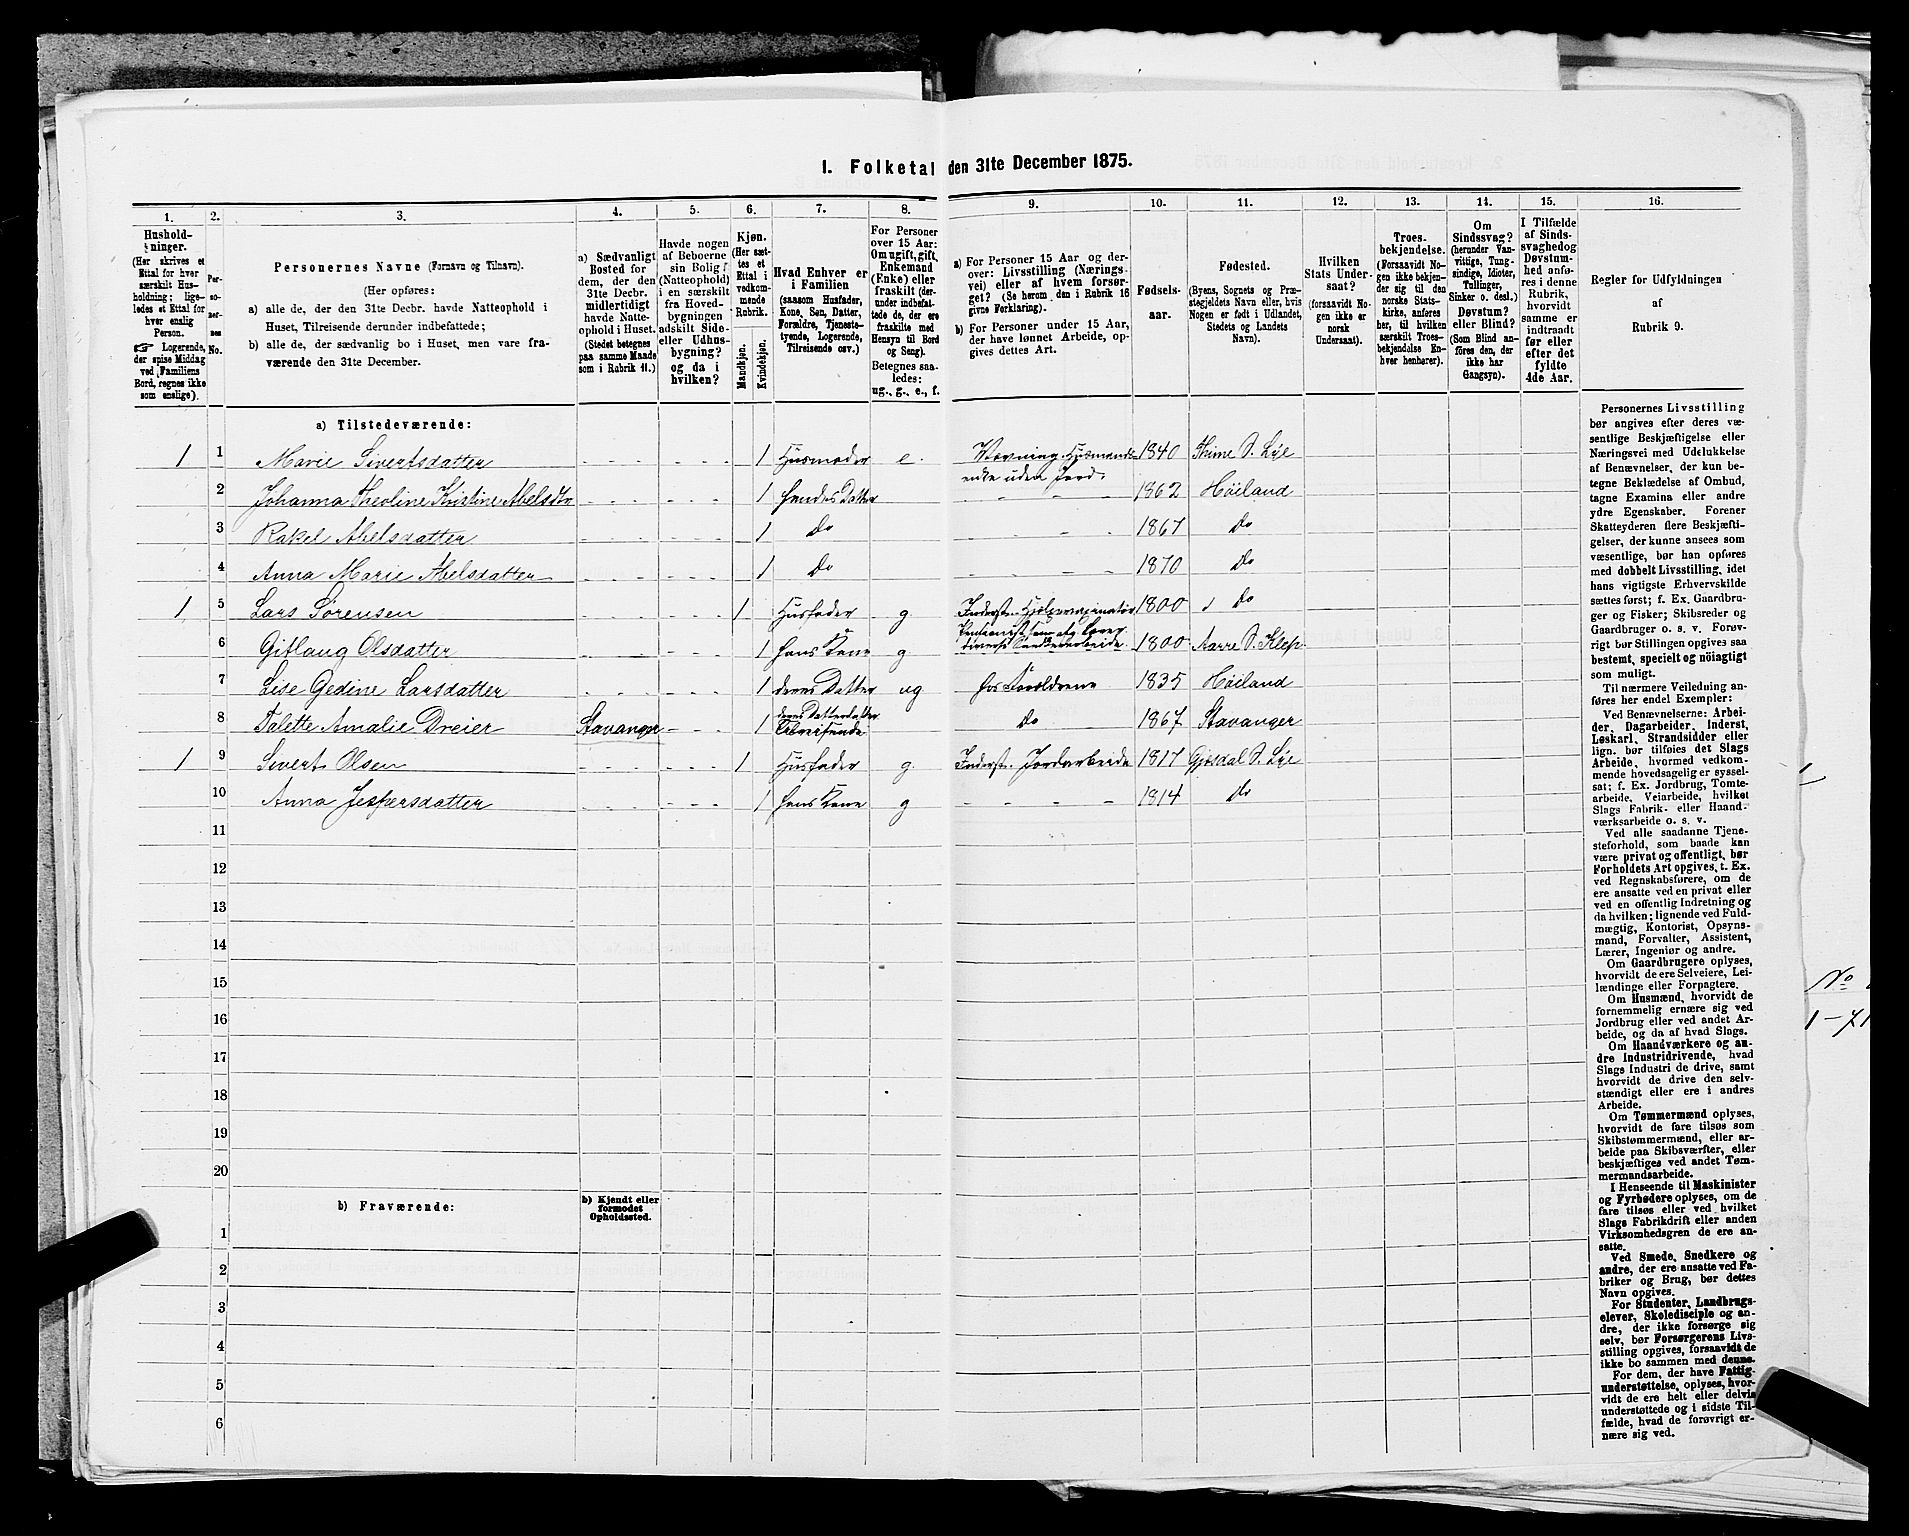 1. Folketal den 31te December 1875.
1. 2. 3. 4. 5. 6. 7. 8. 9. 10. 11. 12. 13. 14. 15. 16.
Hushold-
ninger.
(Her skrives et
Ettal for hver
særskilt Hus-
holdning; lige-
ledes et Ettal for
hver enslig
Person.
☞ Logerende,
der spise Middag
ved Familiens
Bord, regnes ikke
som enslige).
Per-
so-
ner-
nes
No.
Personernes Navne (Fornavn og Tilnavn).
(Her opføres:
a) alle de, der den 31te Decbr. havde Natteophold i
Huset, Tilreisende derunder indbefattede;
b) alle de, der sædvanlig bo i Huset, men vare fra-
værende den 31te December.
a) Sædvanligt
Bosted for
dem, der den
31te Decbr.
midlertidigt
havde Natte-
ophold i Huset.
(Stedet betegnes
paa samme Maade
som i Rubrik 11.)
Havde nogen
af Beboerne
sin Bolig
(Natteophold)
i en særskilt
fra Hoved-
bygningen
adskilt Side-
eller Udhus-
bygning?
og da i
hvilken?
Kjøn.
(Her sæt-
tes et
Ettal i
vedkom-
mende
Rubrik.
Mandkjøn.
Kvindekjøn.
Hvad Enhver er
i Familien
(saasom Husfader,
Kone, Søn, Datter,
Forældre, Tjeneste-
tyende, Logerende,
Tilreisende osv.)
For Personer
over 15 Aar:
Om ugift, gift,
Enkemand
(Enke) eller
fraskilt (der-
under indbefat-
tede de, der ere
fraskilte med
Hensyn til Bord
og Seng).
Betegnes saa-
ledes:
ug., g., e., f.
a) For Personer 15 Aar og der-
over: Livsstilling (Nærings-
vei) eller af hvem forsør-
get? (Se herom den i Rubrik 16
givne Forklaring).
b) For Personer under 15 Aar,
der have lønnet Arbeide, op-
gives dettes Art.
Fødsels-
aar.
Fødested.
(Byens, Sognets og Præ-
stegjeldets Navn eller, hvis
Nogen er født i Udlandet,
Stedets og Landets
Navn).
Hvilken
Stats Under-
saat?
(forsaavidt No-
gen ikke er
norsk
Undersaat).
Troes-
bekjendelse.
(Forsaavidt No-
gen ikke bekjen-
der sig til den
norske Stats-
kirke, anføres
her, til hvilken
særskilt Troes-
bekjendelse En-
hver henhører).
Om
Sindssvag?
(herunder Van-
vittige, Tung-
sindige, Idioter,
Tullinger,
Sinker o. desl.)
Døvstum?
eller Blind?
(Som Blind an-
føres den, der
ikke har
Gangsyn).
I Tilfælde
af Sinds-
svaghedog
Døvstum-
hed anfø-
res i denne
Rubrik,
hvorvidt
samme er
indtraadt
før eller
efter det
fyldte
4de Aar.
Regler for Udfyldningen
af
Rubrik 9.
a) Tilstedeværende:
1 1 Marie Sivertsdatter 1 Husmoder e. Vævning. Husmands- 1840 Thime S. Lye
enke uden Jord.
2 Johanna Theoline Kristine Abelsdtr 1 hendes Datter 1862 Höiland
3 Rakel Abelsdatter 1 Do 1867 Do
4 Anna Marie Abelsdatter 1 Do 1870 Do
1 5 Lars Sörensen 1 Husfader g. 1800 Do
6 Olsdatter 1 hans Kone g. 1800
7 Lise Gedine Larsdatter 1 deres Datter ug hos Forældrene 1835 Höiland
8 Talette Amalie Dreier Stavanger 1 deres Datterdatter Do 1867 Stavanger
Tilreisende
1 9 Sivert Olsen 1 Husfader g. Inderst. Jordarbeide 1817 Gjesdal S. Lye
10 Anna Jespersdatter 1 hans Kone g 1814 Do
11
12
13
14
15
16
17
18
19
20
b) Fraværende: b) Kjendt eller
formodet
Opholdssted.
1
2
3
4
5
6
Personernes Livsstilling
bør angives efter deres væ-
sentlige Beskjæftigelse eller
Næringsvei med Udelukkelse
af Benævnelser, der kun be-
tegne Beklædelse af Ombud,
tagne Examina eller andre
ydre Egenskaber. Forener
Skatteyderen flere Beskjæfti-
gelser, der kunne ansees som
væsentlige, bør han opføres
med dobbelt Livsstilling, idet
hans vigtigste Erhvervskilde
sættes først; f. Ex. Gaardbru-
ger og Fisker; Skibsreder og
Gaardbruger o. s. v. Forøv-
rigt bør Stillingen opgives saa
bestemt, specielt og nöiagtig
som muligt.
Til nærmere Veiledning an-
føres her endel Exempler:
Ved Benævnelserne: Arbei-
der, Dagarbeider, Inderst,
Løskarl, Strandsidder eller
lign. bør tilføies det Slags
Arbeide, hvormed vedkom-
mende hovedsagelig er syssel-
sat; f. Ex. Jordbrug, Tomte-
arbeide, Veiarbeide, hvilket
Slags Fabrik- eller Haand-
værksarbeide o. s. v.
Ved alle saadanne Tjene-
steforhold, som baade kan
være privat og offentligt, bør
Forholdets Art opgives, t. Ex.
ved Regnskabsførere, om de
ere ansatte ved en privat eller
ved en offentlig Indretning og
da hvilken; lignende ved Fuld-
mægtig, Kontorist, Opsyns-
mand, Forvalter, Assistent,
Lærer, Ingeniør og andre.
Om Gaardbrugere oplyses,
hvorvidt de ere Selveiere, Lei-
lændinge eller Forpagtere.
Om Husmænd, hvorvidt de
fornemmelig ernære sig ved
Jordbrug eller ved andet Ar-
beide, og da af hvad Slags.
Om Haandværkere og an-
dre Industridrivende, hvad
Slags Industri de drive, samt
hvorvidt de drive den selv-
stændigt eller ere i andres
Arbeide.
Om Tømmermænd oplyses,
hvorvidt de fare tilsøs som
Skibstømmermænd, eller ar-
beide paa Skibsværfter, eller
beskjæftiges ved andet Tøm-
mermandsarbeide.
I Henseende til Maskinister
og Fyrbødere oplyses, om de
fare tilsøs eller ved hvilket
Slags Fabrikdrift eller anden
Virksomhedsgren de ere an-
satte.
Ved Smede, Snedkere og
andre, der ere ansatte ved Fa-
briker og Brug, bør dettes
Navn opgives.
For Studenter, Landbrugs-
elever, Skoledisciple og an-
dre, der ikke forsørge sig
selv, bør Forsørgerens Livs-
stilling opgives, forsaavidt de
ikke bo sammen med denne.
For dem, der have Fattig-
understøttelse, oplyses, hvor-
vidt de ere helt eller delvis
understøttede og i sidste Til-
fælde, hvad de forøvrigt er-
nære sig ved.
No
1-71